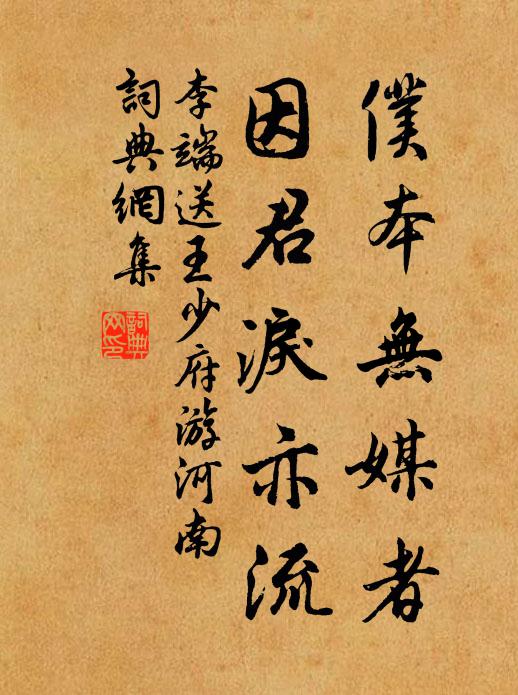 僕本無媒者
因君淚亦流
李端送王少府游河南
詞典網集
詞典網印